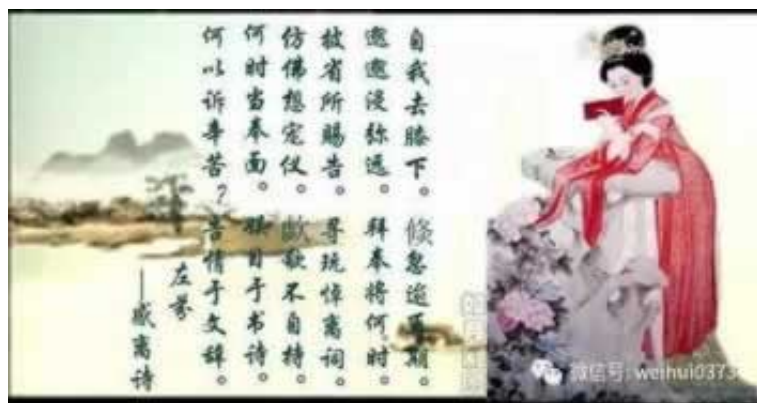 自我去膝下。倏忽逾再期。
邈邈浸弥远。拜奉将何时。
披省所赐告。寻玩悼离词。
仿佛想容仪。歔欷不自持。
何时当奉面。娱目于书诗。
何以诉辛苦?告情于文辞。
左芬
——感离诗
微信号: weihui0373